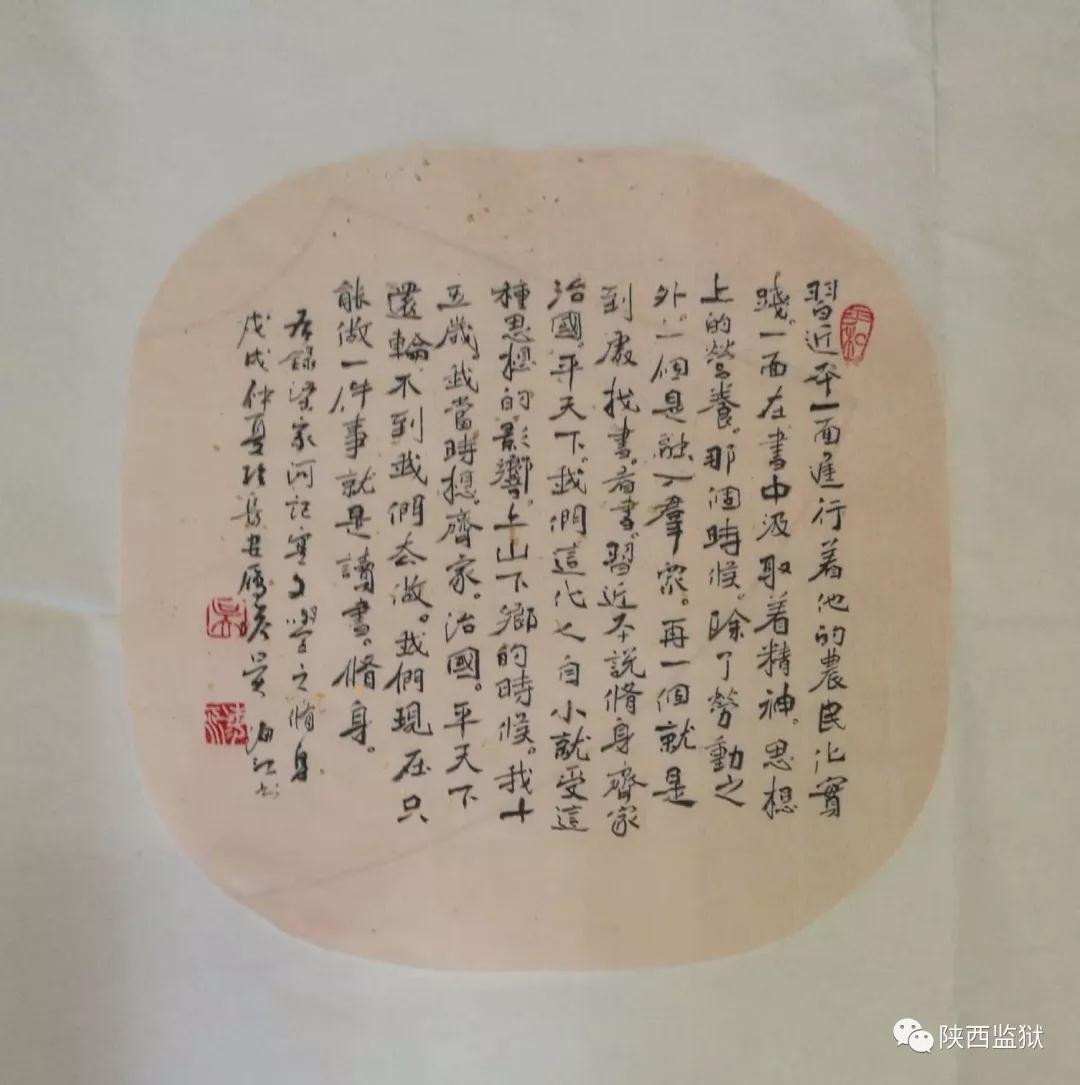 習近平一面進行着他的農民化實
踐。一面在書中汲取着精神。思想
上的營養。那個時候。除了勞動之
外。一個是融入羣眾。再一個就是
到處找書。看書。習近平說脩身齊家
治國。平天下。我們這代人自小就受這
種思想的影響。上山下鄉的時候。我十
五歲。我當時想。齊家。治國。平天下
還輪不到我們去做。我們現在只
能做一件事就是讀書。脩身。
右錄梁家河記實文學之脩身
戊戌仲夏於長安雁 吳海江书
吳
陕西监狱